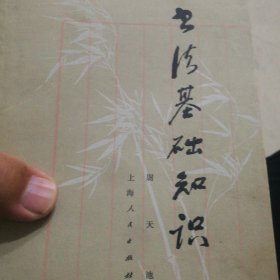 书法基础知识
周天池
上海人民出版社